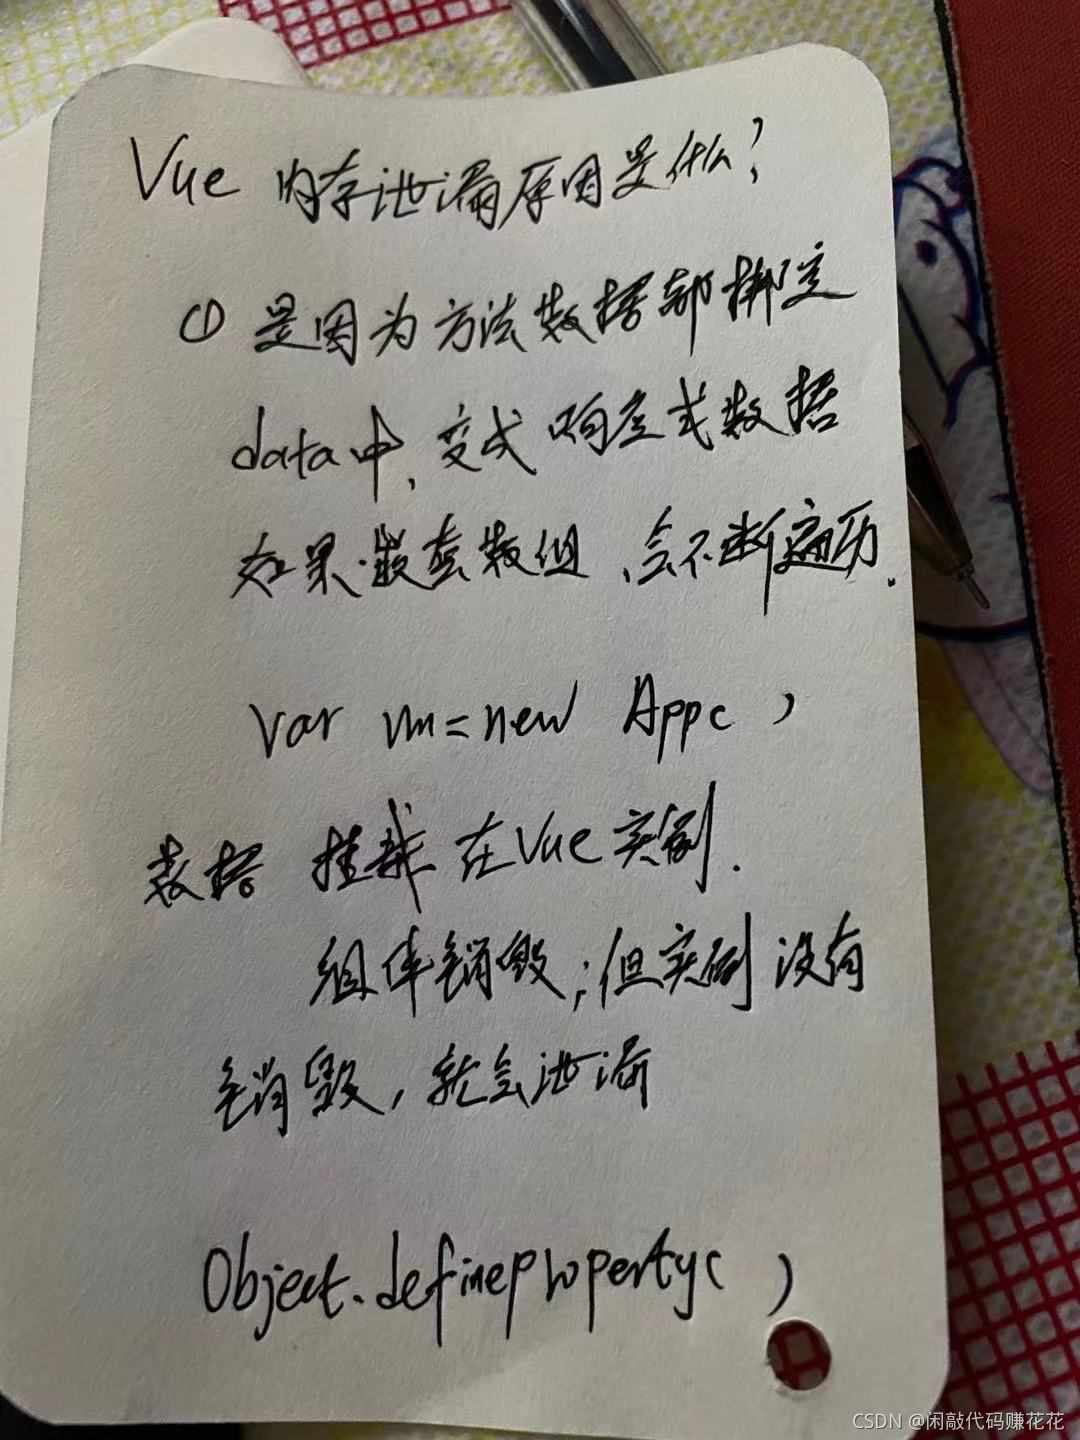 Vue 内存泄漏原因是什么?
① 是因为方法数据都绑定
data中,变成响应式数据
如果嵌套数组、会不断遍历.
var vm=new App( )
数据 挂载 在Vue实例.
组件销毁;但实例没有
销毁,就会泄漏
Object.defineProperty( )
CSDN @闲敲代码赚花花